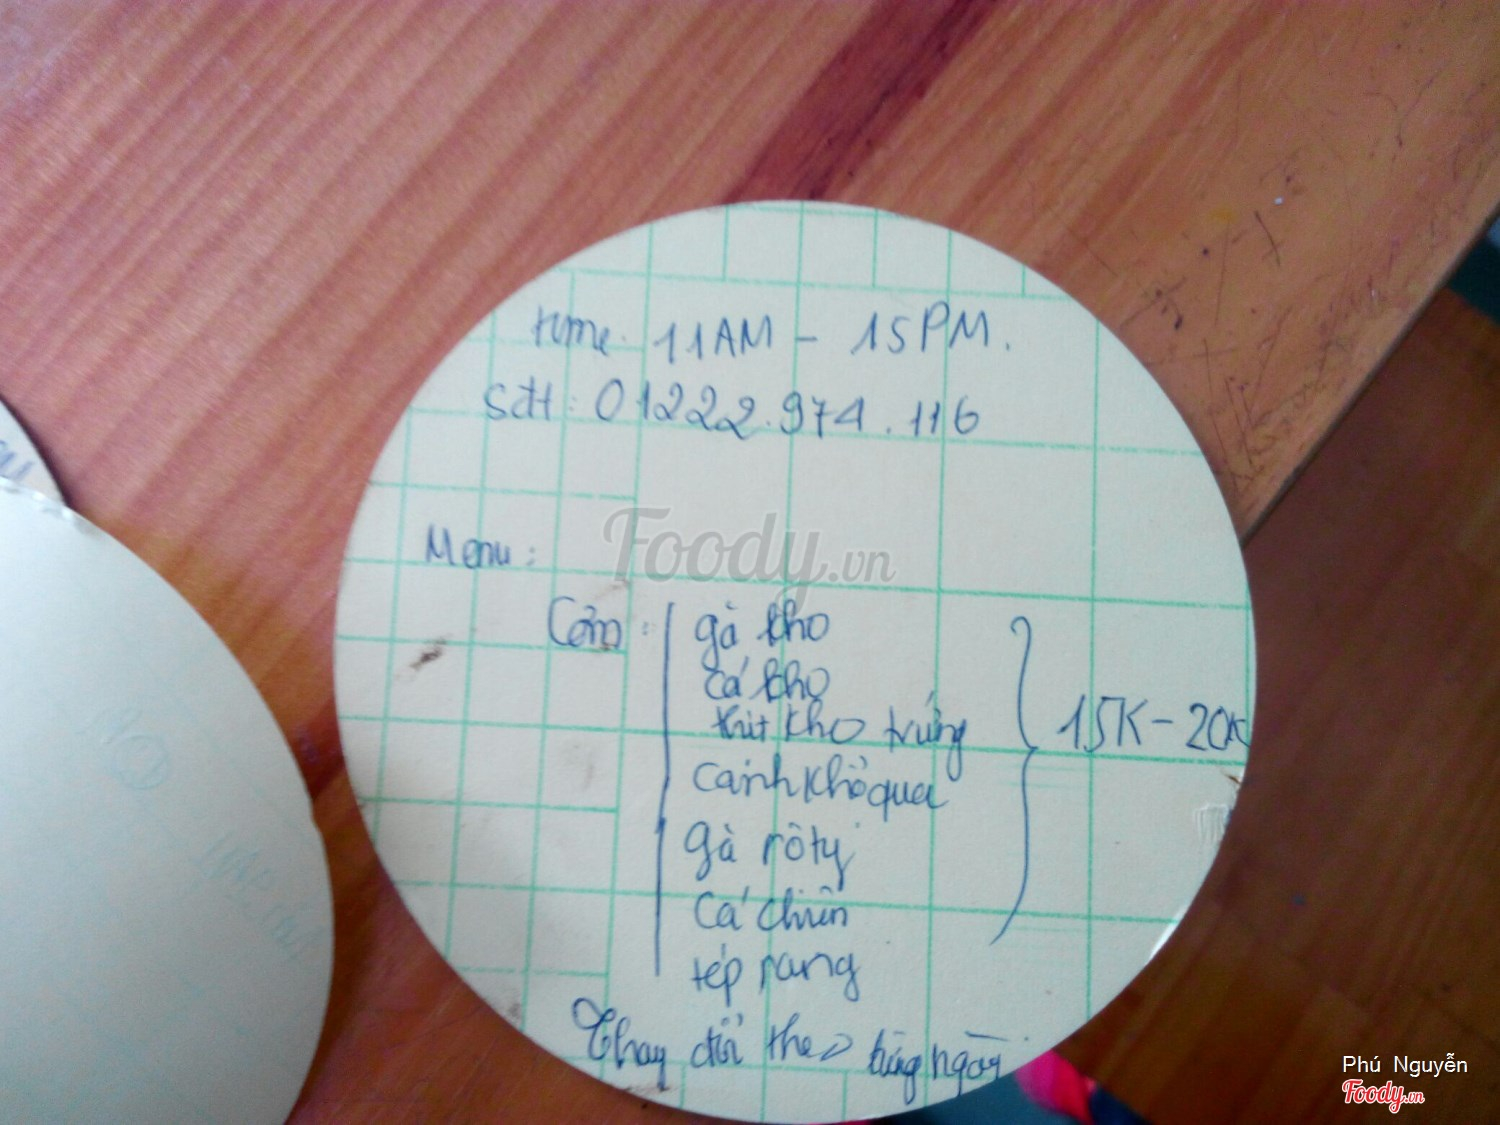 time. 11AM - 15PM.
sđt: 01222.974.116
Menu:
Cơm:
gà kho
cá kho
thịt kho trứng
canh khổ qua
gà rôty
cá chiên
tép rang
15K - 20K
Thay đổi theo từng ngày
Foody.vn
Phú Nguyễn
Foody.vn